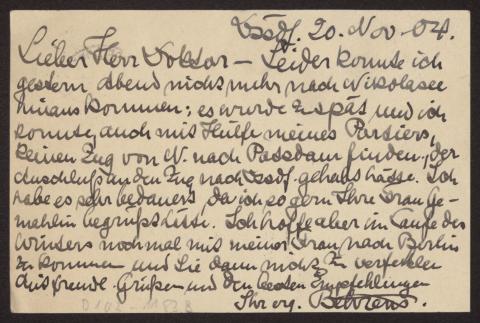 Dssdf. 20. Nov. 04.
Lieber Herr Doktor – Leider konnte ich
gestern Abend nicht mehr nach Nikolasee
hinaus kommen; es wurde zu spät und ich
konnte, auch mit Hülfe meines Portiers,
keinen Zug von W. nach Potsdam finden, der
Anschluß an den Zug nach Dssdf. gehabt hätte. Ich
habe es sehr bedauert, da ich so gern Ihre Frau Ge-
mahlin begrüßt hätte. Ich hoffe aber im Laufe des
Winters nochmal mit meiner Frau nach Berlin
zu kommen und Sie dann nicht zu verfehlen
Mit freundl. Grüßen und den besten Empfehlungen
Ihr erg. Behrens.